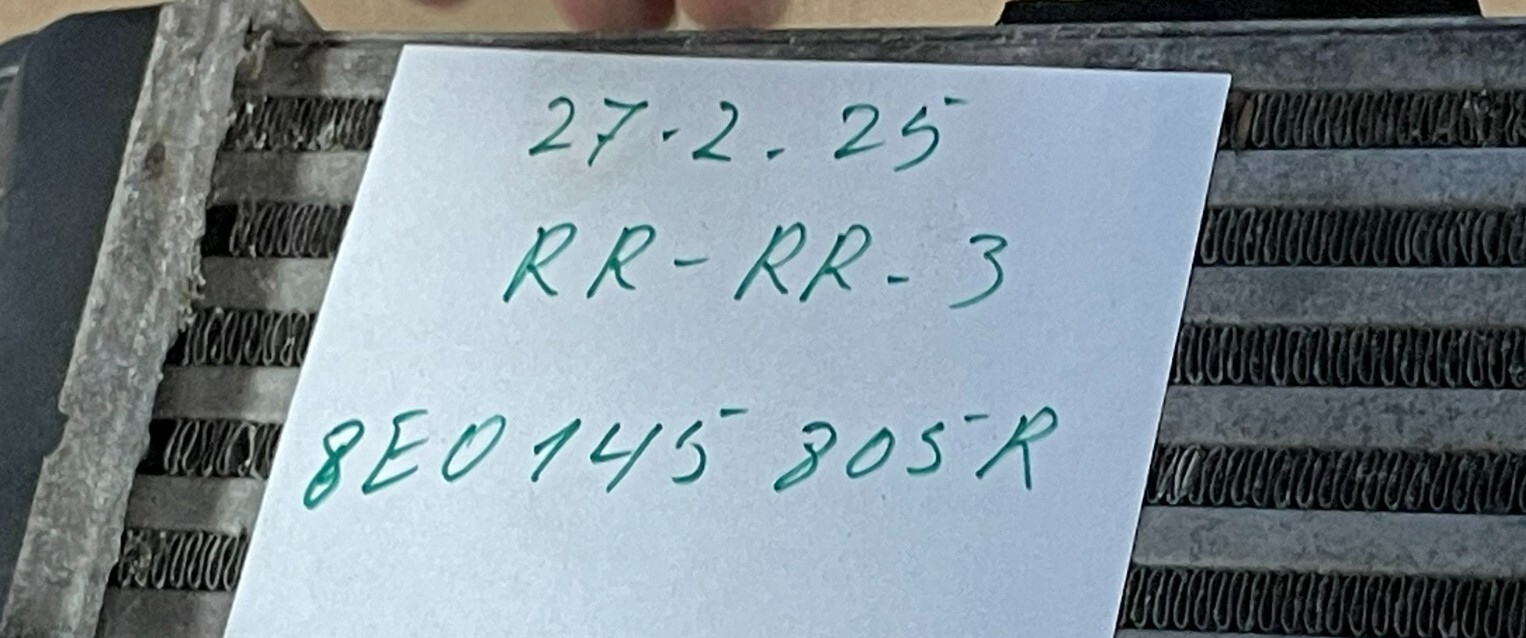 27.2.25
RR-RR-3
8E0 145 805 R